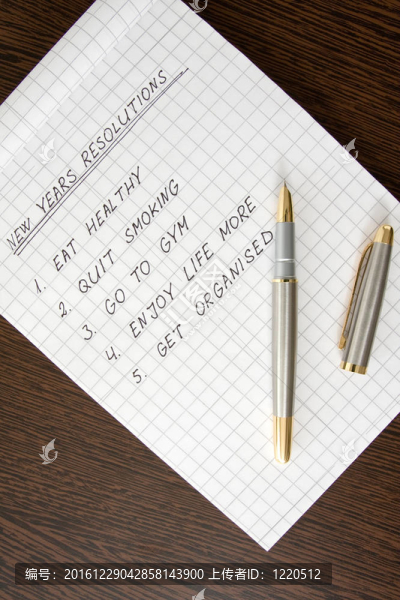 NEW YEARS RESOLUTIONS
1. EAT HEALTHY
2. QUIT SMOKING
3. GO TO GYM
4. ENJOY LIFE MORE
5. GET ORGANISED
编号：20161229042858143900 上传者ID：1220512